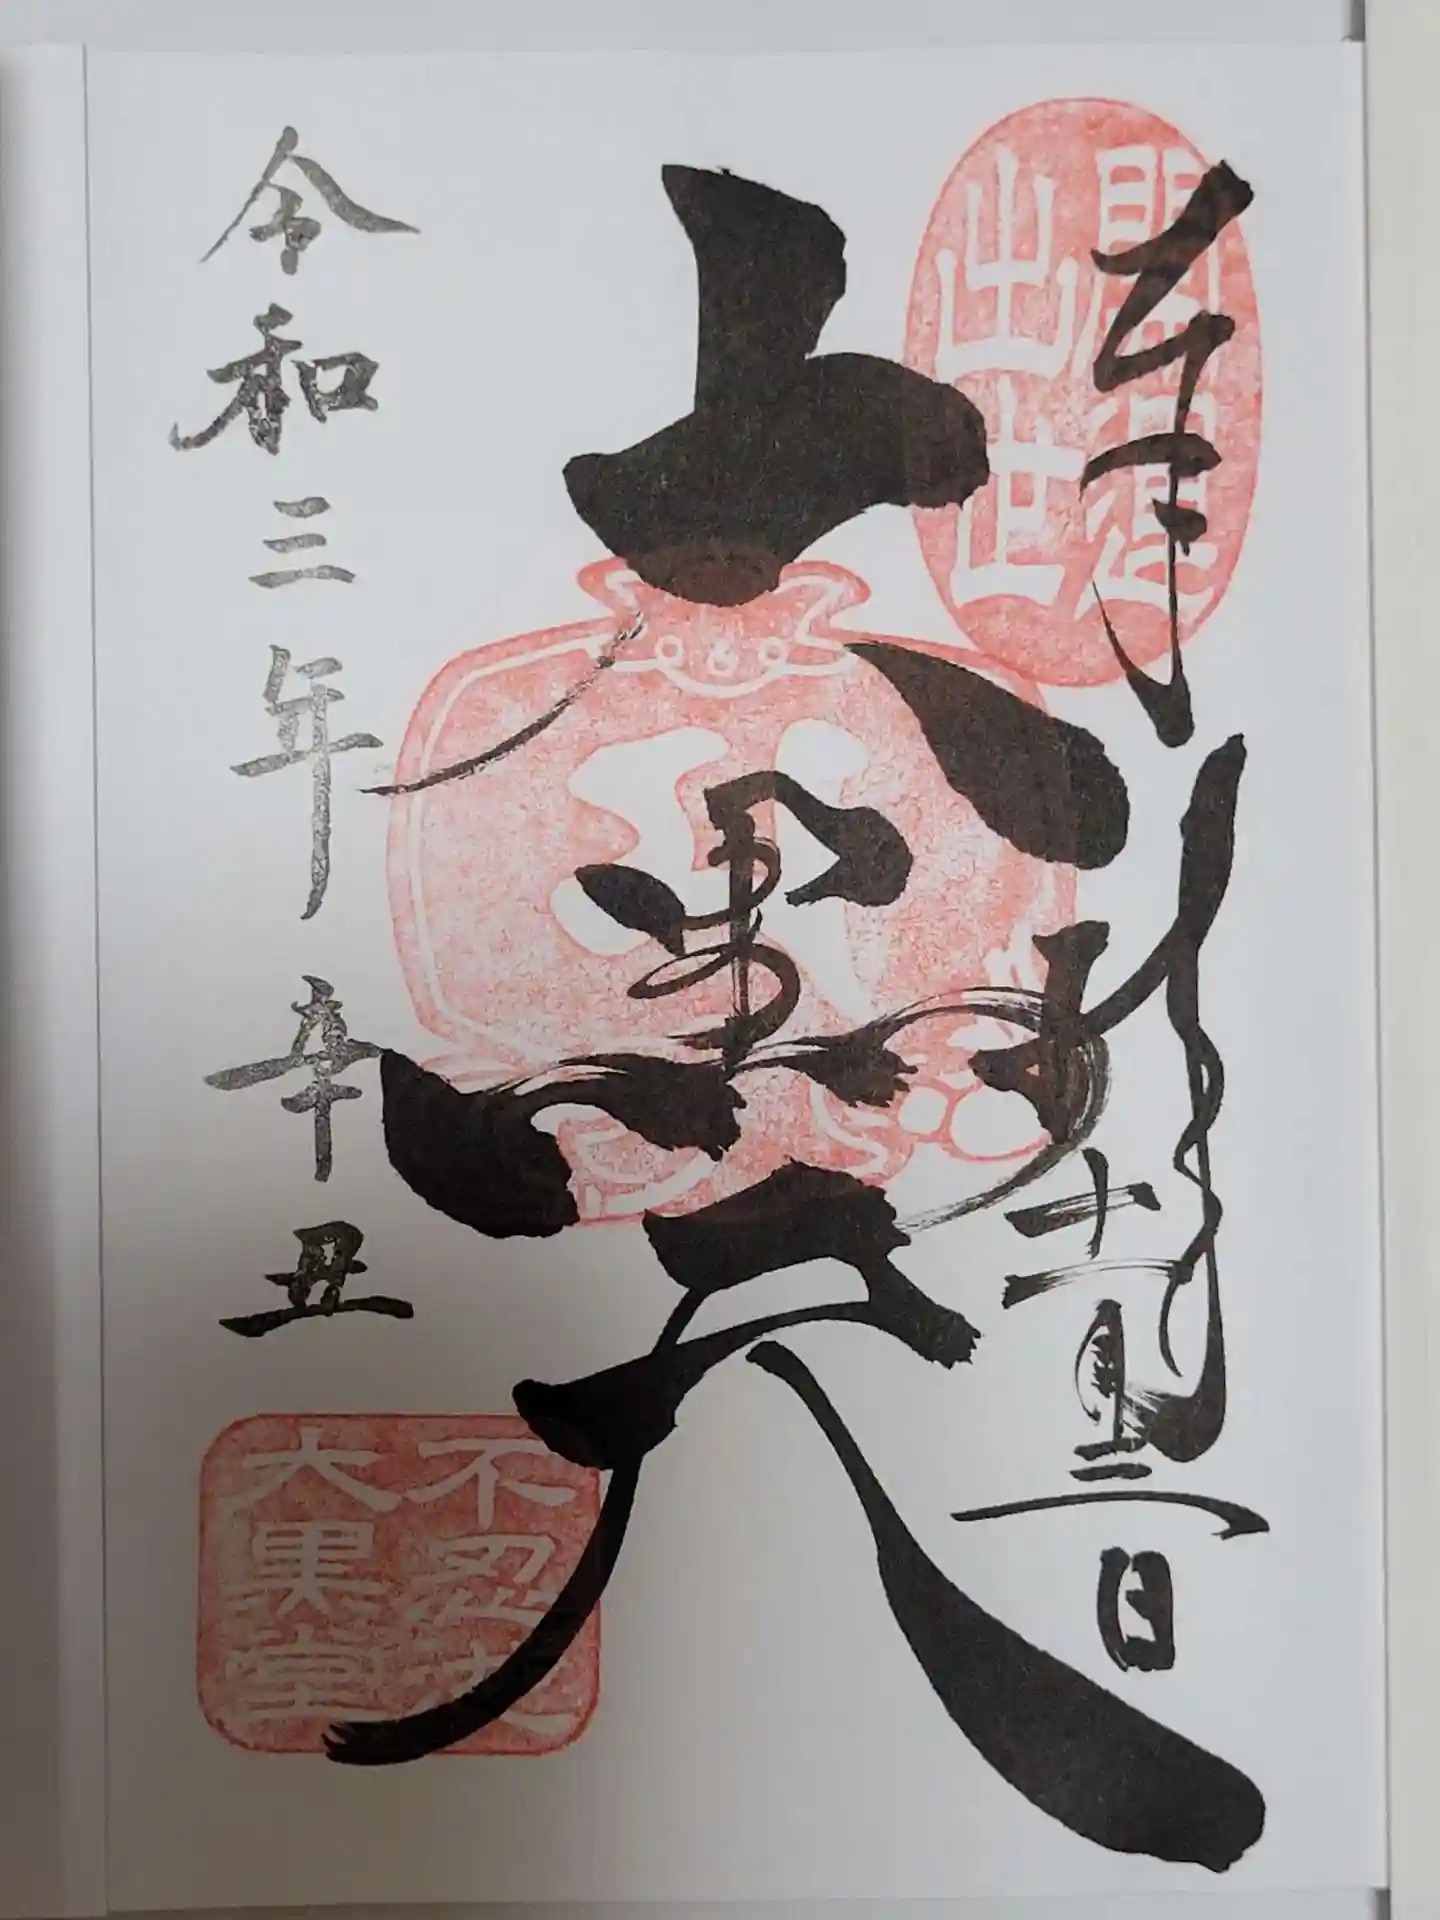 開運
出世
奉拝
十一月三日
大黒天
令和三年 辛丑
不忍池
大黒堂